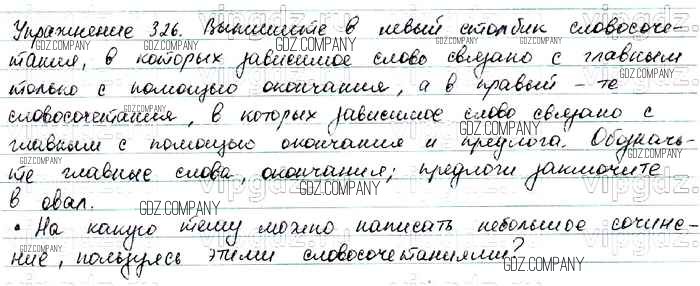 Упражнение 326. Выпишите в левый столбик словосоче-
тания, в которых зависимое слово связано с главным
только с помощью окончания, а в правый – те
словосочетания, в которых зависимое слово связано с
главным с помощью окончания и предлога. Обозначь-
те главные слова, окончания; предлоги заключите
в овал.
• На какую тему можно написать небольшое сочине-
ние, пользуясь этими словосочетаниями?
GDZ.COMPANY
vipgdz.ru